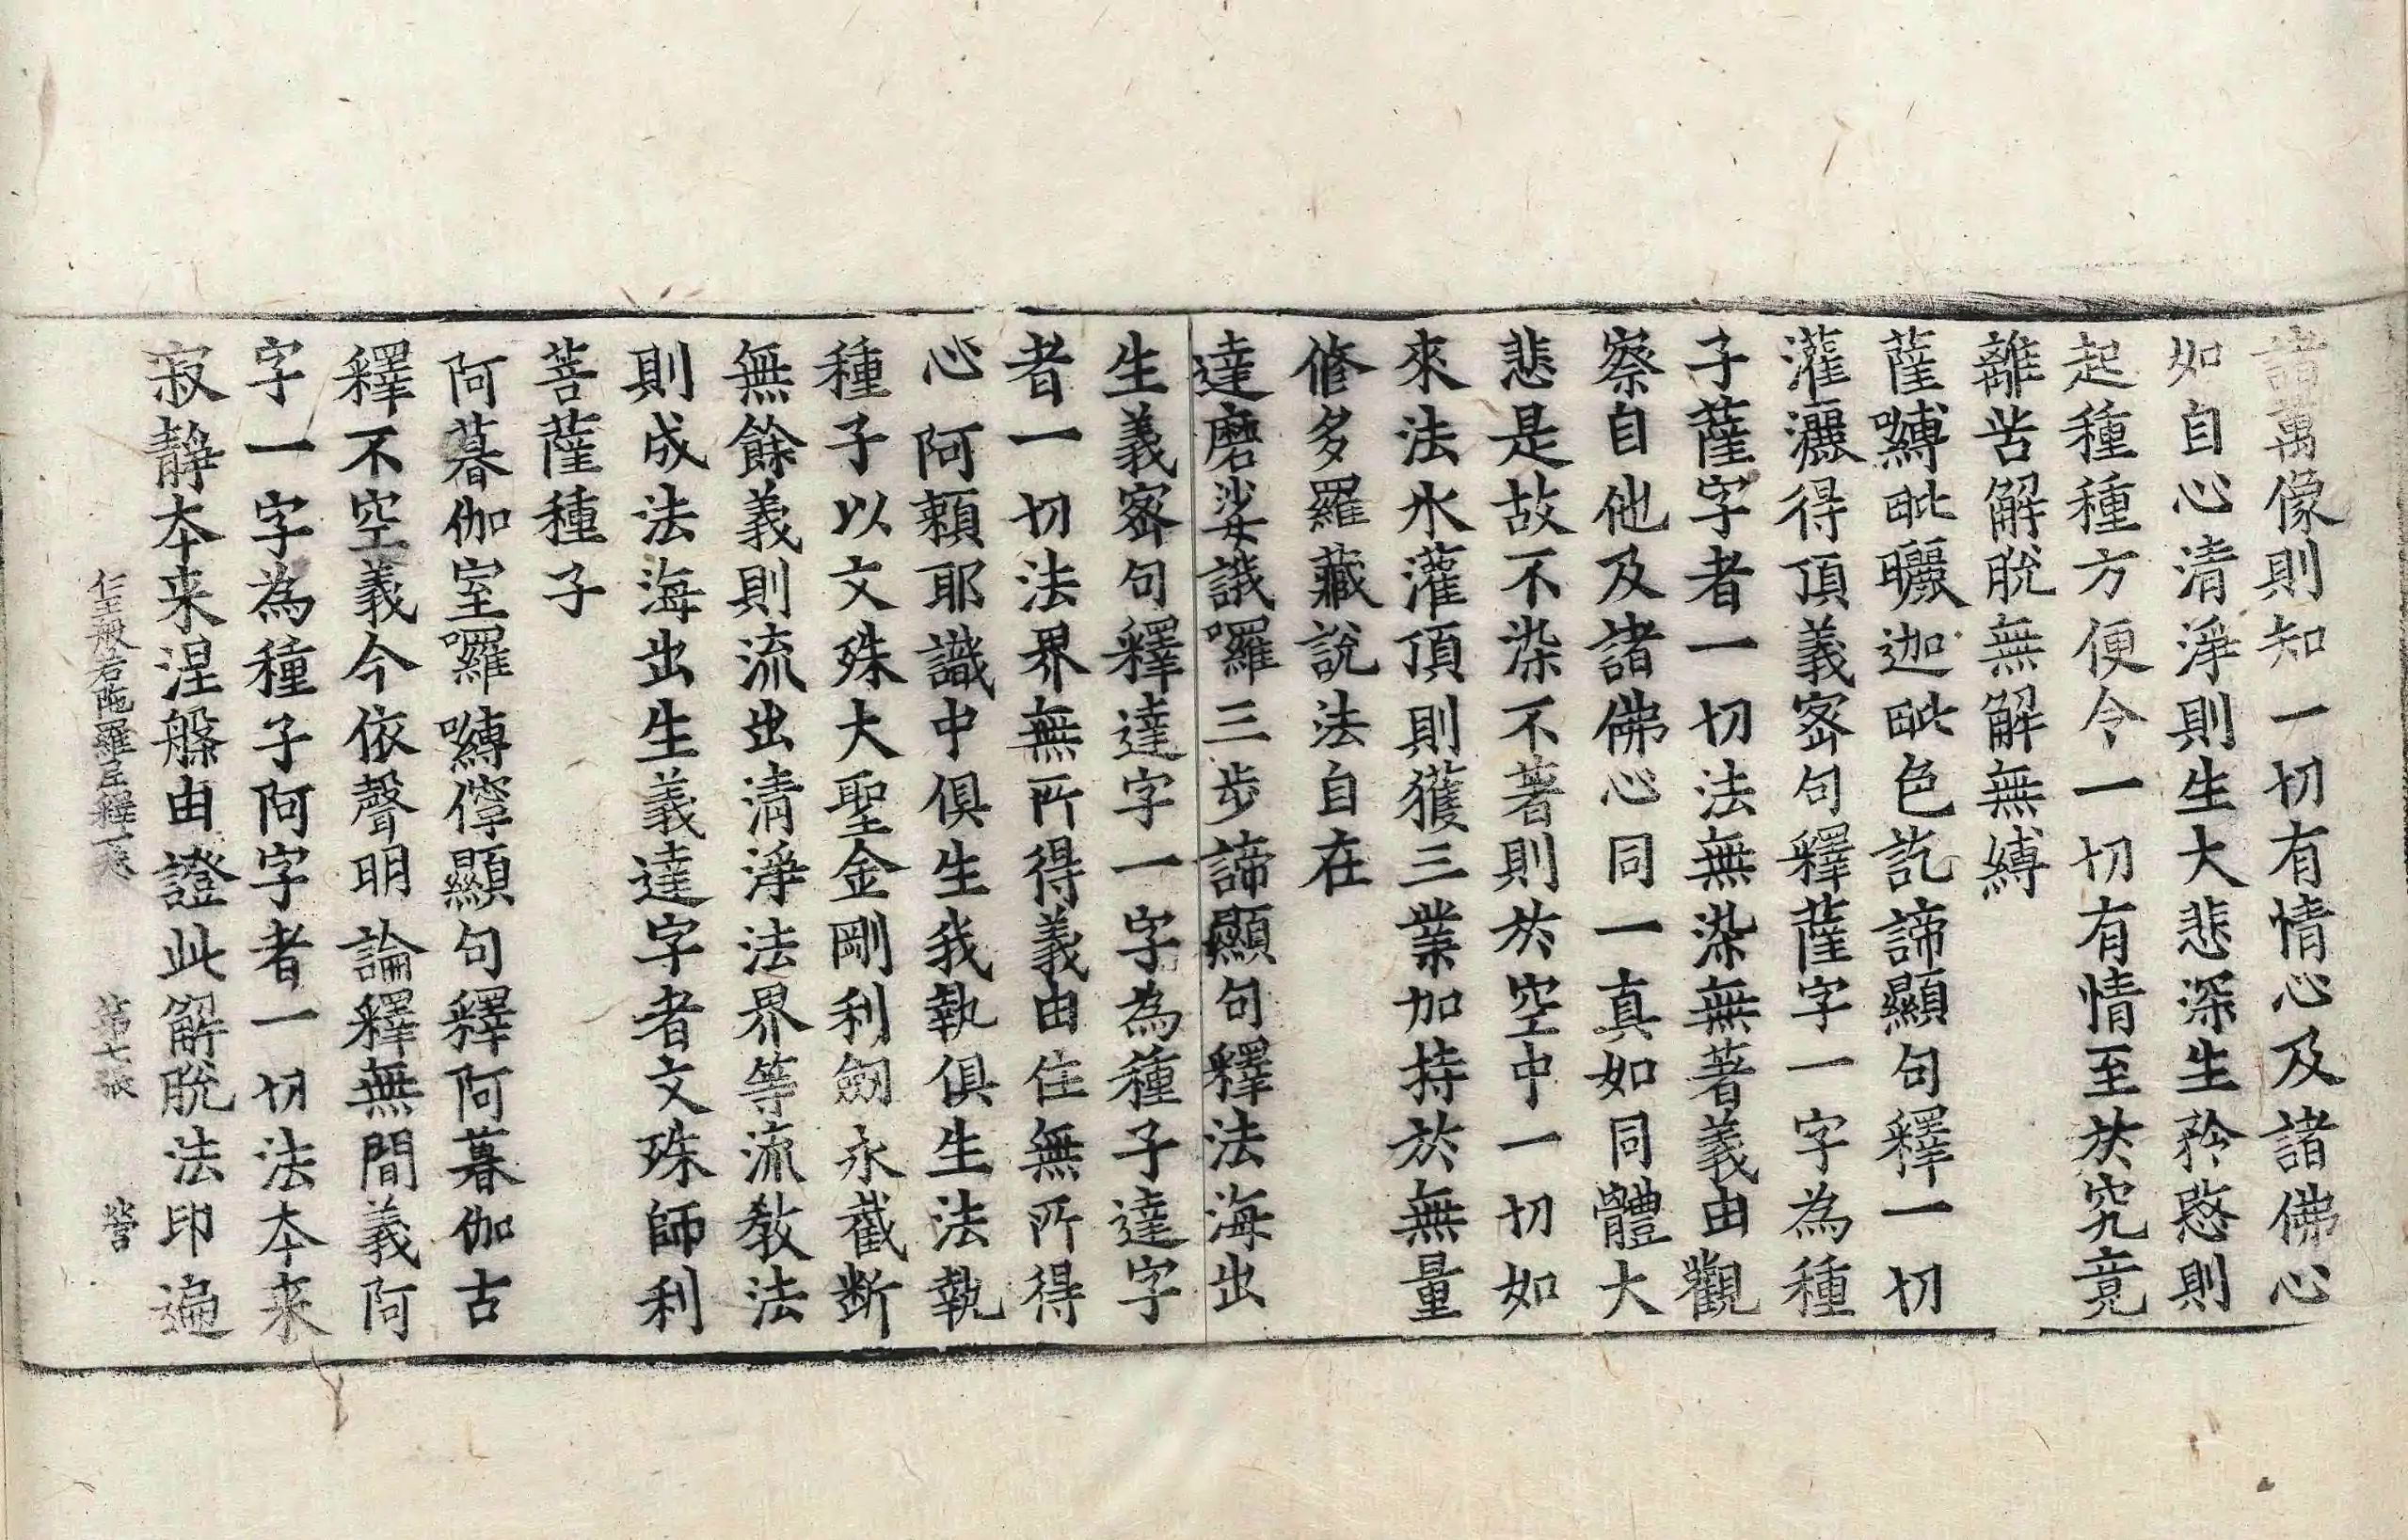 諸萬像則知一切有情心及諸佛心
如自心清淨則生大悲深生矜愍則
起種種方便令一切有情至於究竟
離苦解脫無解無縛
薩嚩毗曬迦毗色訖諦顯句釋一切
灌灑得頂義密句釋薩字一字為種
子薩字者一切法無染無著義由觀
察自他及諸佛心同一真如同體大
悲是故不染不著則於空中一切如
來法水灌頂則獲三業加持於無量
修多羅藏說法自在
達磨娑誐囉三步諦顯句釋法海出
生義密句釋達字一字為種子達字
者一切法界無所得義由住無所得
心阿賴耶識中俱生我執俱生法執
種子以文殊大聖金剛利劒永截断
無餘義則流出清淨法界等流教法
則成法海出生義達字者文殊師利
菩薩種子
阿暮伽室囉嚩儜顯句釋阿暮伽古
釋不空義今依聲明論釋無間義阿
字一字為種子阿字者一切法本来
寂靜本来涅槃由證此解脫法印遍
仁王般若陁羅尼釋一卷　第七張　營